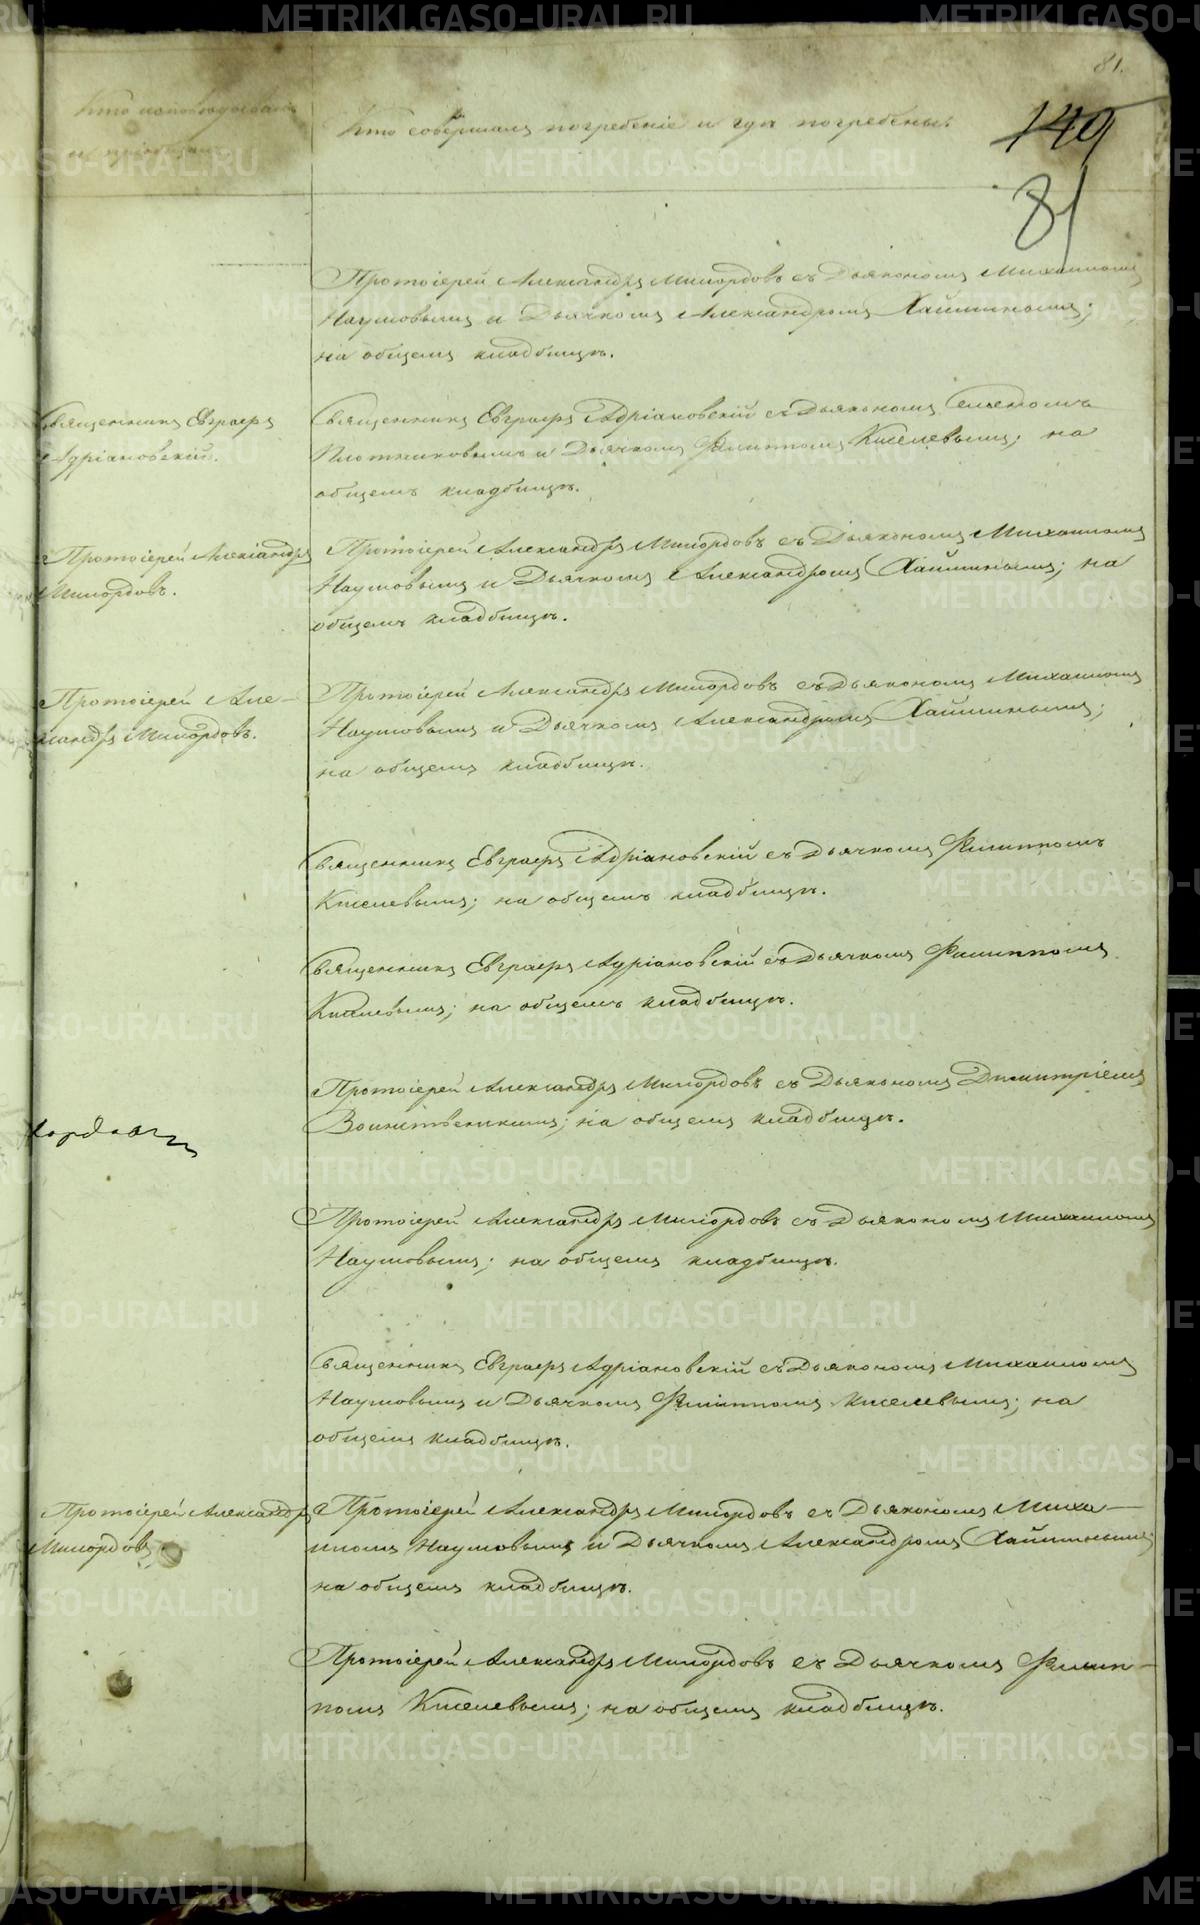 81.
149
81
Кто исповѣдывалъ
и пріобщалъ
Кто совершалъ погребеніе и гдѣ погребены.
Протоіерей Александръ Милордовъ съ Діякономъ Михаиломъ
Наумовымъ и Дьячкомъ Александромъ Хайминымъ;
на общемъ кладбищѣ.
Священникъ Евграфъ
Адріановскій.
Священникъ Евграфъ Адріановскій съ Діякономъ Семеномъ
Плотниковымъ и Дьячкомъ Филиппомъ Киселевымъ; на
общемъ кладбищѣ.
Протоіерей Александръ
Милордовъ.
Протоіерей Александръ Милордовъ съ Діякономъ Михаиломъ
Наумовымъ и Дьячкомъ Александромъ Хайминымъ; на
общемъ кладбищѣ.
Протоіерей Але-
ксандръ Милордовъ.
Протоіерей Александръ Милордовъ съ Діякономъ Михаиломъ
Наумовымъ и Дьячкомъ Александромъ Хайминымъ;
на общемъ кладбищѣ.
Священникъ Евграфъ Адріановскій съ Дьячкомъ Филиппомъ
Киселевымъ; на общемъ кладбищѣ.
Священникъ Евграфъ Адріановскій съ Дьячкомъ Филиппомъ
Киселевымъ; на общемъ кладбищѣ.
Протоіерей Александръ Милордовъ съ Діякономъ Димитріемъ
Воинственскимъ; на общемъ кладбищѣ.
Протоіерей Александръ Милордовъ съ Діякономъ Михаиломъ
Наумовымъ; на общемъ кладбищѣ.
Священникъ Евграфъ Адріановскій съ Діякономъ Михаиломъ
Наумовымъ и Дьячкомъ Филиппомъ Киселевымъ; на
общемъ кладбищѣ.
Протоіерей Александръ
Милордовъ.
Протоіерей Александръ Милордовъ съ Діякономъ Миха-
иломъ Наумовымъ и Дьячкомъ Александромъ Хайминымъ;
на общемъ кладбищѣ.
Протоіерей Александръ Милордовъ съ Дьячкомъ Филип-
помъ Киселевымъ; на общемъ кладбищѣ.
METRIKI.GASO-URAL.RU